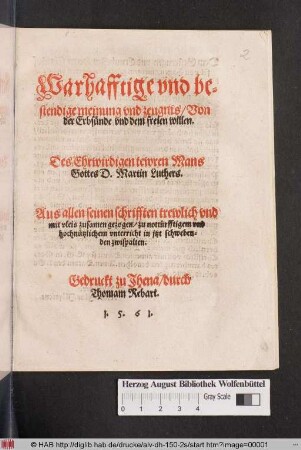 2
Warhafftige vnd be-
stendige meinung vnd zeugnis/Von
der Erbsünde vnd dem freien willen.
Des Ehrwirdigen tewren Mans
Gottes D. Martin Luthers.
Aus allen seinen schrifften trewlich vnd
mit vleis zusamen gezogen/zu notturfftigem vnd
hochnützlichem vnterricht in itzt schweben-
den zwispalten.
Gedruckt zu Jhena/durch
Thomam Rebart.
1. 5. 6 1.
Herzog August Bibliothek Wolfenbüttel
Gray Scale
© HAB http://diglib.hab.de/drucke/alv-dh-150-2s/start.htm?image=00001